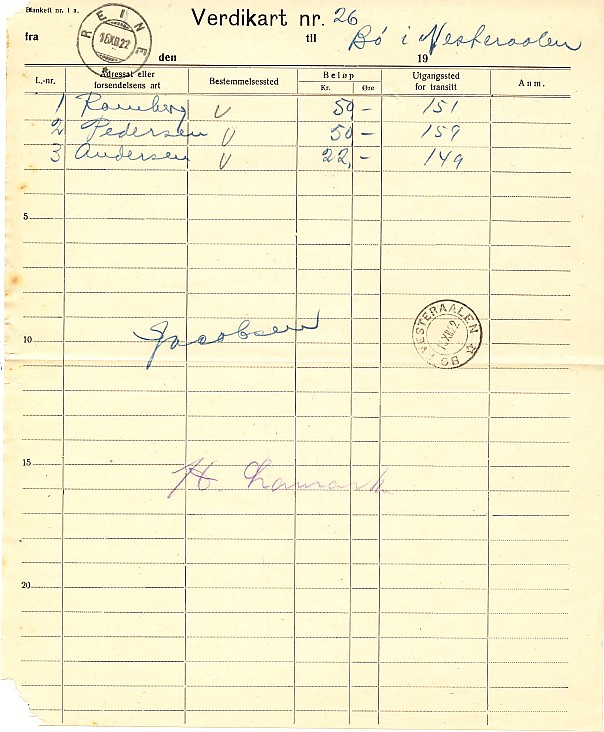 Blankett nr. 1 a.
Verdikart nr. 26
fra REINE 16 XII 22 til Bö i Vesteraalen
den 19
L.-nr. Adressat eller forsendelsens art Bestemmelsessted Beløp Kr. Øre Utgangssted for transitt Anm.
1 Ramberg V 50 - 151
2 Pedersen V 50 - 159
3 Andersen V 22, - 149
5
BØ I VESTERAALEN
10 Jacobsen
15
H.
20